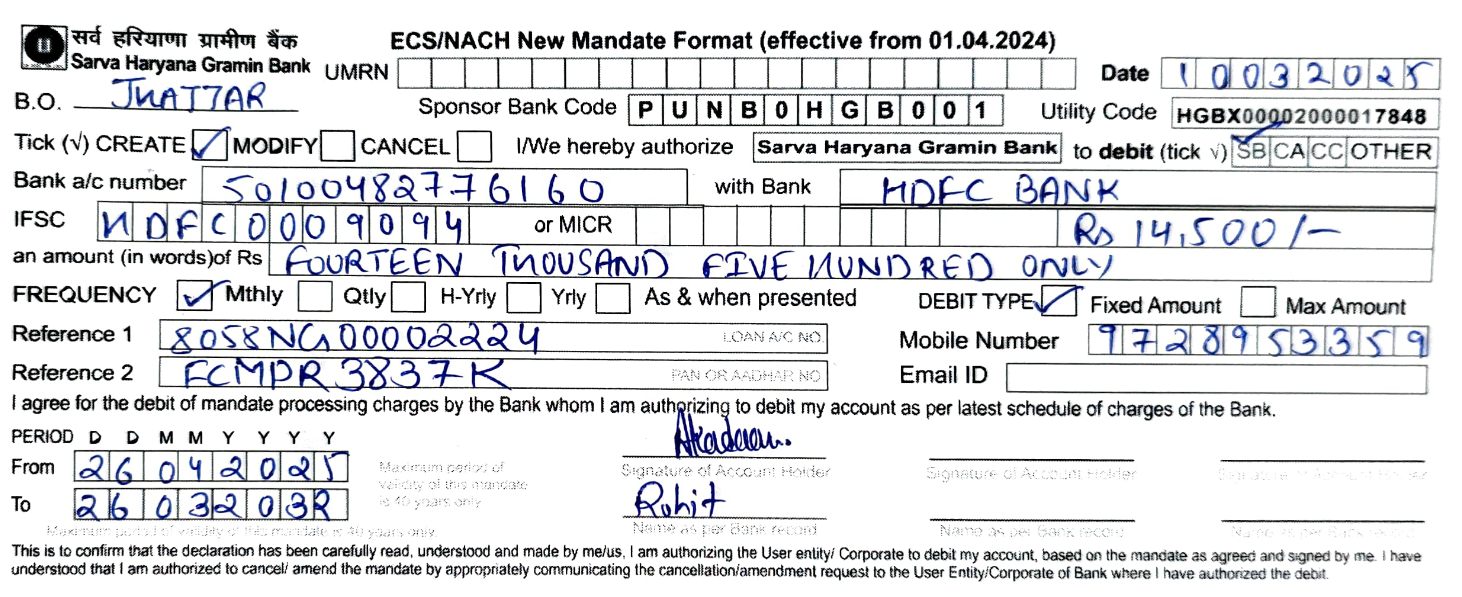 सर्व हरियाणा ग्रामीण बैंक
Sarva Haryana Gramin Bank
ECS/NACH New Mandate Format (effective from 01.04.2024)
UMRN Date 10032025
B.O. JHAJJAR Sponsor Bank Code PUNB0HGB001 Utility Code HGBX00002000017848
Tick (√) CREATE ✓ MODIFY CANCEL I/We hereby authorize Sarva Haryana Gramin Bank to debit (tick √) SB CA CC OTHER
Bank a/c number 50100482776160 with Bank HDFC BANK
IFSC HDFC0009094 or MICR Rs 14,500/-
an amount (in words)of Rs FOURTEEN THOUSAND FIVE HUNDRED ONLY
FREQUENCY ✓ Mthly Qtly H-Yrly Yrly As & when presented DEBIT TYPE ✓ Fixed Amount Max Amount
Reference 1 8058NG00002224 LOAN A/C NO. Mobile Number 9728953359
Reference 2 FCMPR3837K PAN OR AADHAR NO Email ID
I agree for the debit of mandate processing charges by the Bank whom I am authorizing to debit my account as per latest schedule of charges of the Bank.
PERIOD D D M M Y Y Y Y
From 26042025 Maximum period of validity of this mandate is 40 years only Signature of Account Holder Signature of Account Holder Signature of Account Holder
To 26032032 Rohit
Maximum period of validity of this mandate is 40 years only. Name as per Bank record Name as per Bank record Name as per Bank record
This is to confirm that the declaration has been carefully read, understood and made by me/us, I am authorizing the User entity/ Corporate to debit my account, based on the mandate as agreed and signed by me. I have
understood that I am authorized to cancel/ amend the mandate by appropriately communicating the cancellation/amendment request to the User Entity/Corporate of Bank where I have authorized the debit.